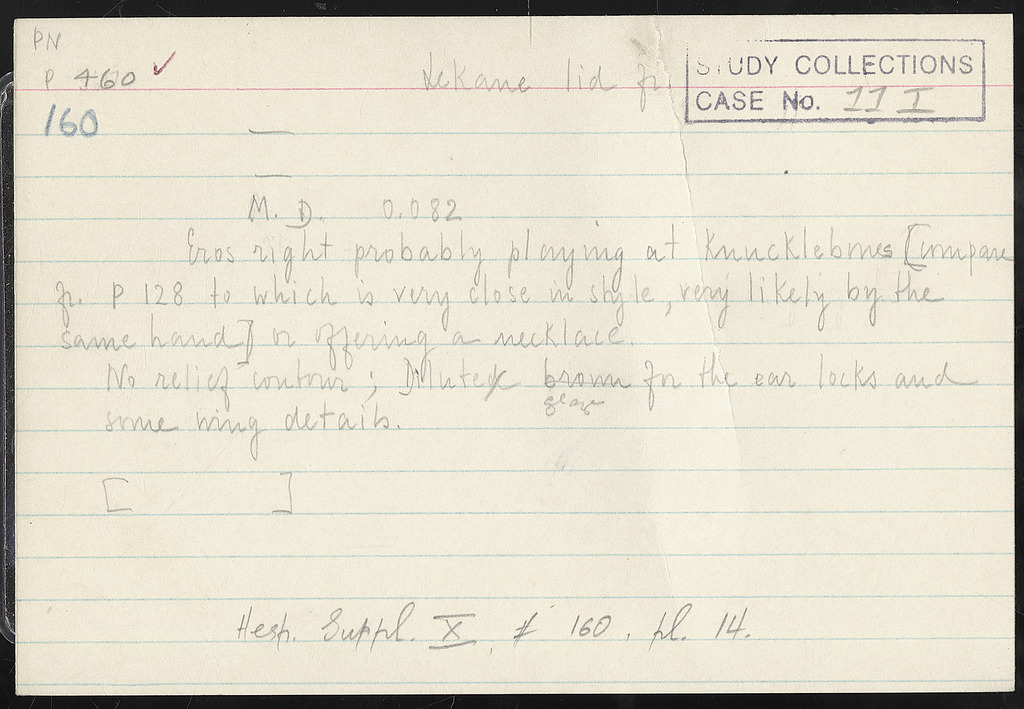 PN
P 460 ✓
Lekane lid fr.
STUDY COLLECTIONS
CASE No. 11 I
160
M. D. 0.082
Eros right probably playing at knucklebones [compare
fr. P 128 to which is very close in style, very likely by the
same hand] or offering a necklace.
No relief contour; Dilute brown for the ear locks and
glaze
some wing details.
[ ]
Hesp. Suppl. X, # 160, pl. 14.